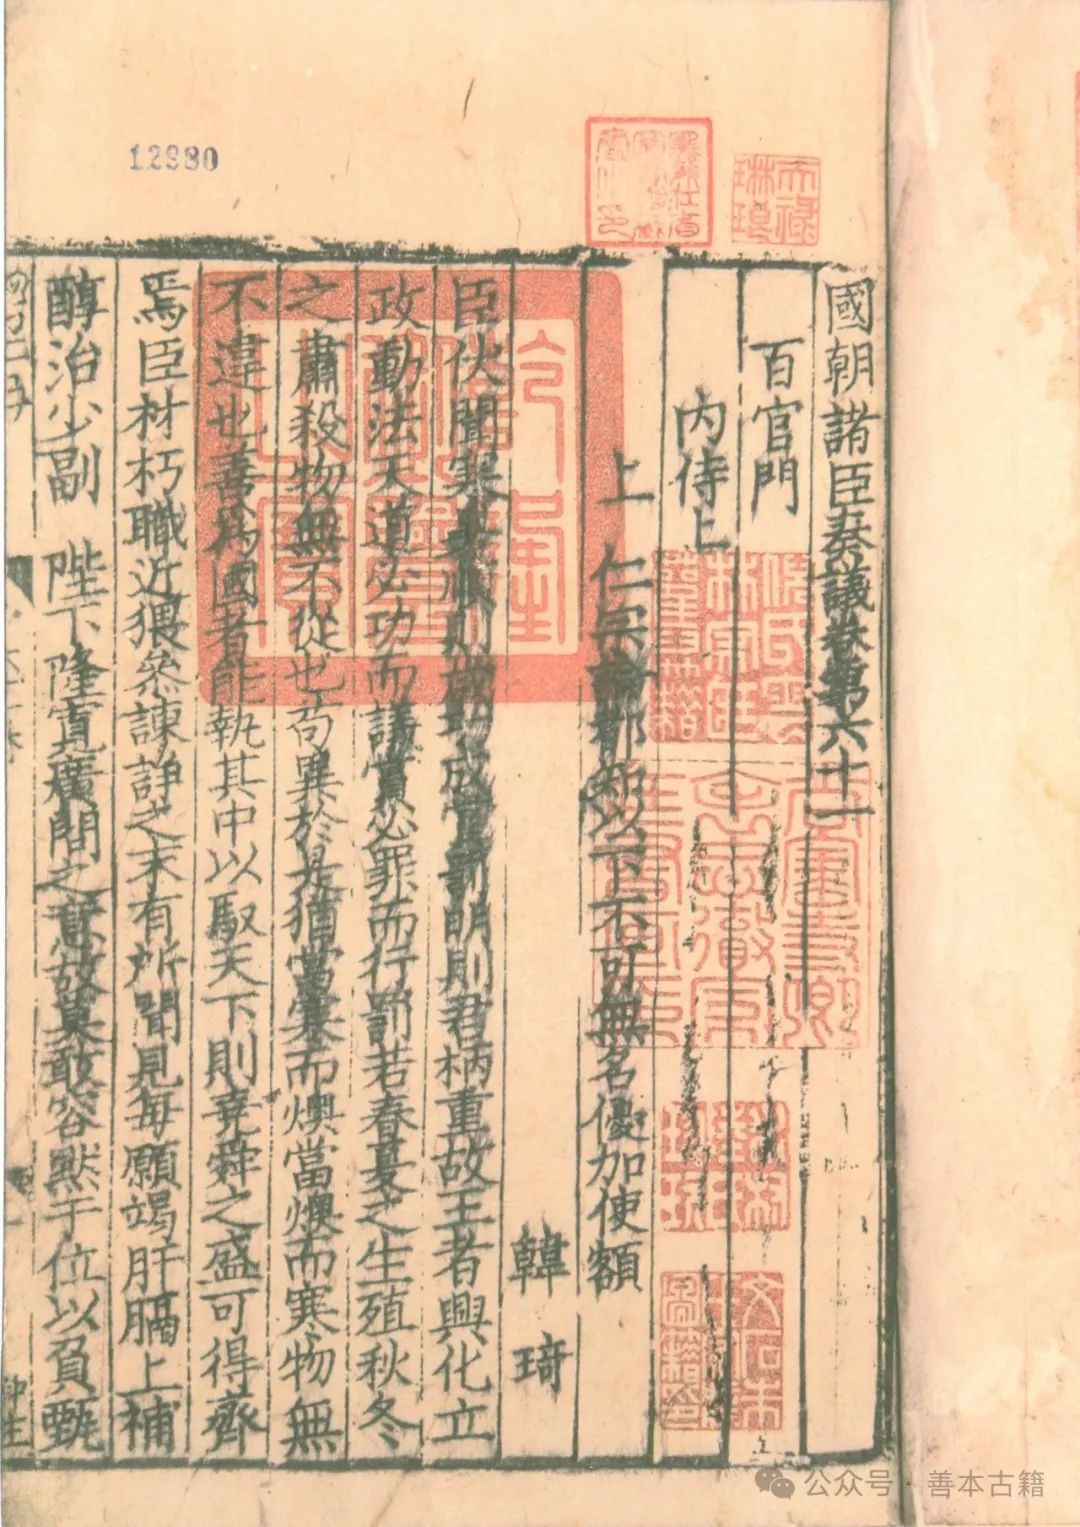 12980
國朝諸臣奏議卷第六十一
百官門
内侍上
上 仁宗論都知以下不可無名優加使額
韓 琦
臣伏聞寒暑順則歲功成賞罰明則君柄重故王者興化立
政動法天道必功而議賞必罪而行罰若春夏之生殖秋冬
之肅殺物無不從也苟異於是猶當寒而燠當燠而寒物無
不違也善為國者能執其中以馭天下則堯舜之盛可得齊
焉臣材朽職近猥叅諫諍之末有所聞見每願竭肝膈上補
醇治少副 陛下隆寬廣問之意故莫敢容黙于位以負甄
天祿琳琅
公众号·善本古籍